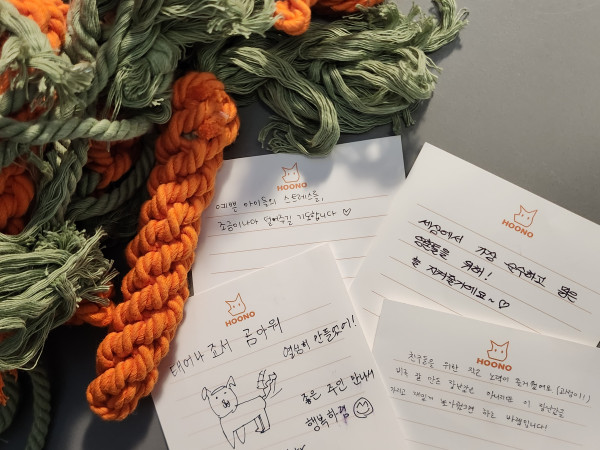 HOONO
예쁜 아이들의 스트레스를,
조금이나마 덜어주길 기도합니다 ♡
HOONO
세상에서 가장 순수하고 맑은
영혼들을 위해!
늘 지켜줄게요~ ♡
HOONO
태어나 줘서 고마워
열심히 만들었어!
좋은 주인 만나서
행복하렴
HOONO
친구들을 위한 작은 노력이 즐거웠어요
비록 잘 만든 장난감은 아니지만 이 장난감
가지고 재밌게 놀아줬으면 하는 바램입니다!